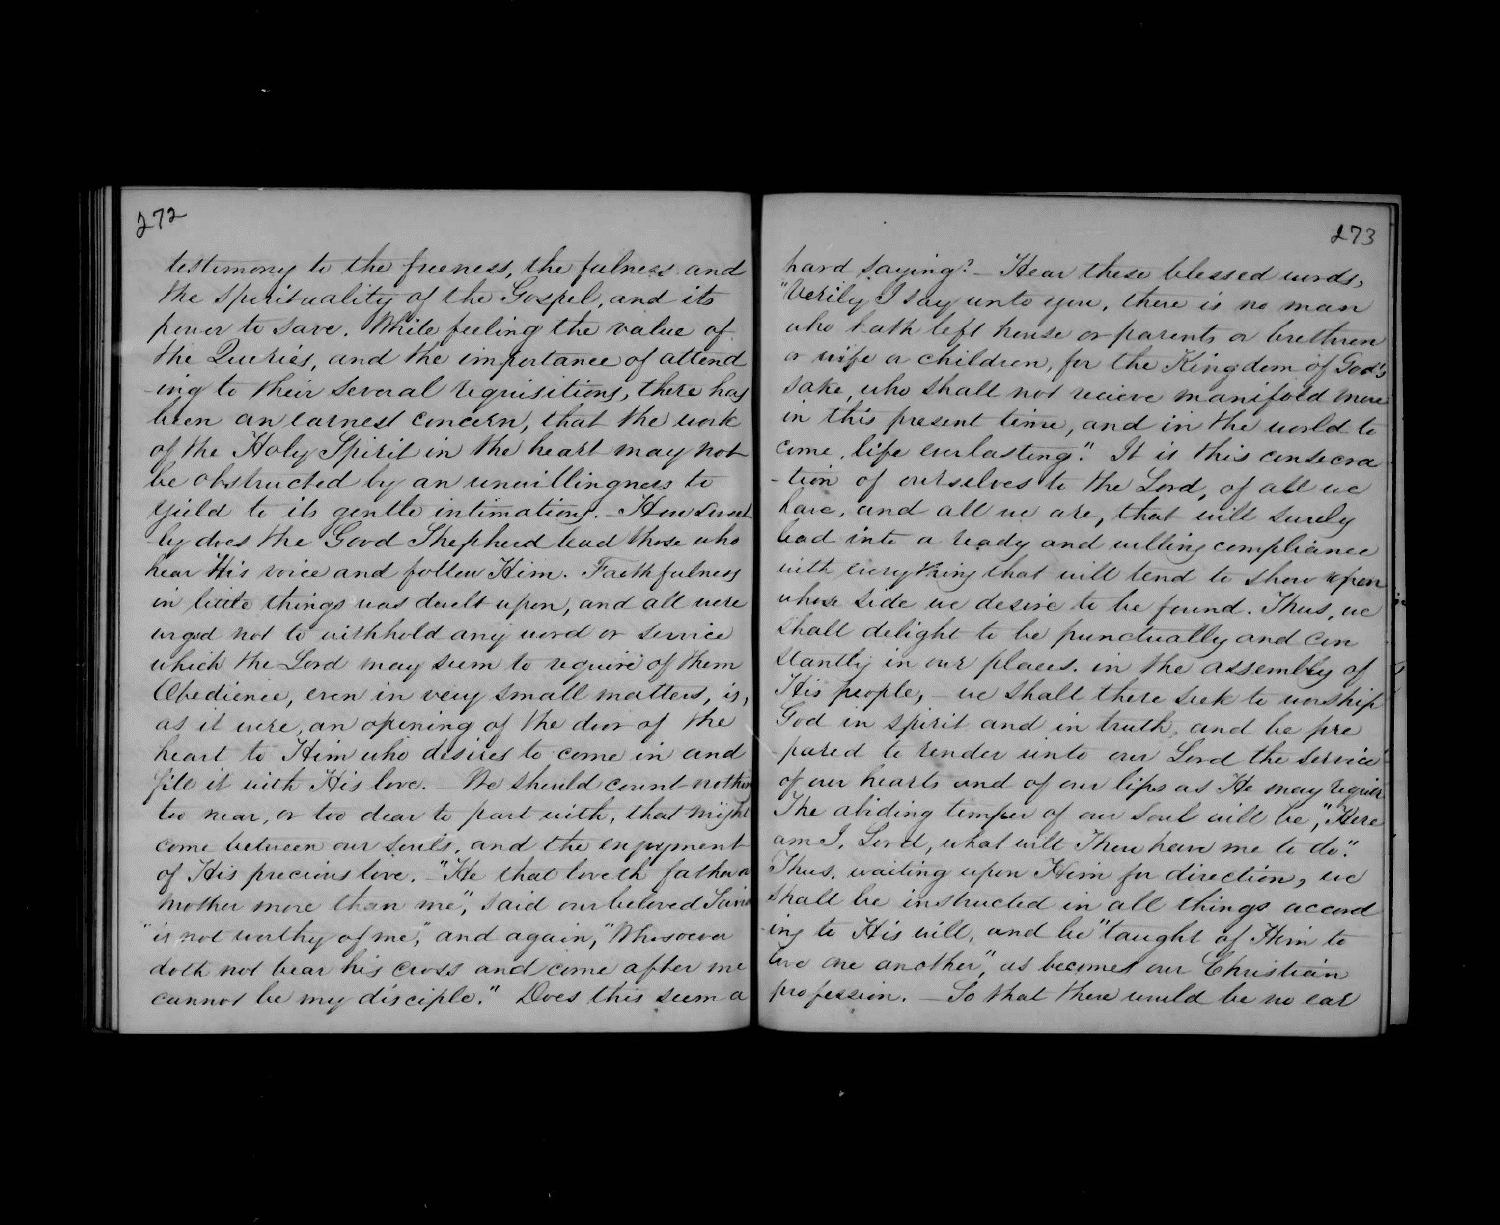 272
testimony to the freeness, the fulness and
the spirituality of the Gospel, and its
power to save. While feeling the value of
the Queries, and the importance of attend
-ing to their several requisitions, there has
been an earnest concern, that the work
of the Holy Spirit in the heart may not
be obstructed by an unwillingness to
yield to its gentle intimations. - How sweet
-ly does the Good Shepherd lead those who
hear His voice and follow Him. Faithfulness
in little things was dwelt upon, and all were
urged not to withhold any word or service
which the Lord may seem to require of them
Obedience, even in very small matters, is,
as it were, an opening of the door of the
heart to Him who desires to come in and
fill it with His love. - We should count nothing
too near, or too dear to part with, that might
come between our souls, and the enjoyment
of His precious love. - "He that loveth father or
mother more than me", said our beloved
"is not worthy of me", and again, "Whosoever
doth not bear his cross and come after me
cannot be my disciple." Does this seem a
273
hard saying? - Hear these blessed words,
"Verily I say unto you, there is no man
who hath left house or parents or brethren
or wife or children, for the Kingdom of God's
sake, who shall not recieve manifold more
in this present time, and in the world to
come, life everlasting." It is this consecra
-tion of ourselves to the Lord, of all we
have, and all we are, that will surely
lead into a ready and willing compliance
with everything that will tend to show upon
whose side we desire to be found. Thus, we
shall delight to be punctually and con
stantly in our places. in the assembly of
His people, - we shall there seek to worship
God in spirit and in truth, and be pre
-pared to render unto our Lord the service
of our hearts and of our lips as He may require
The abiding temper of our soul will be, "Here
am I, Lord, what wilt Thou have me to do."
Thus, waiting upon Him for direction, we
shall be instructed in all things accord
-ing to His will, and be "taught of Him to
love one another", as becomes our Christian
profession. - So that there would be no ear